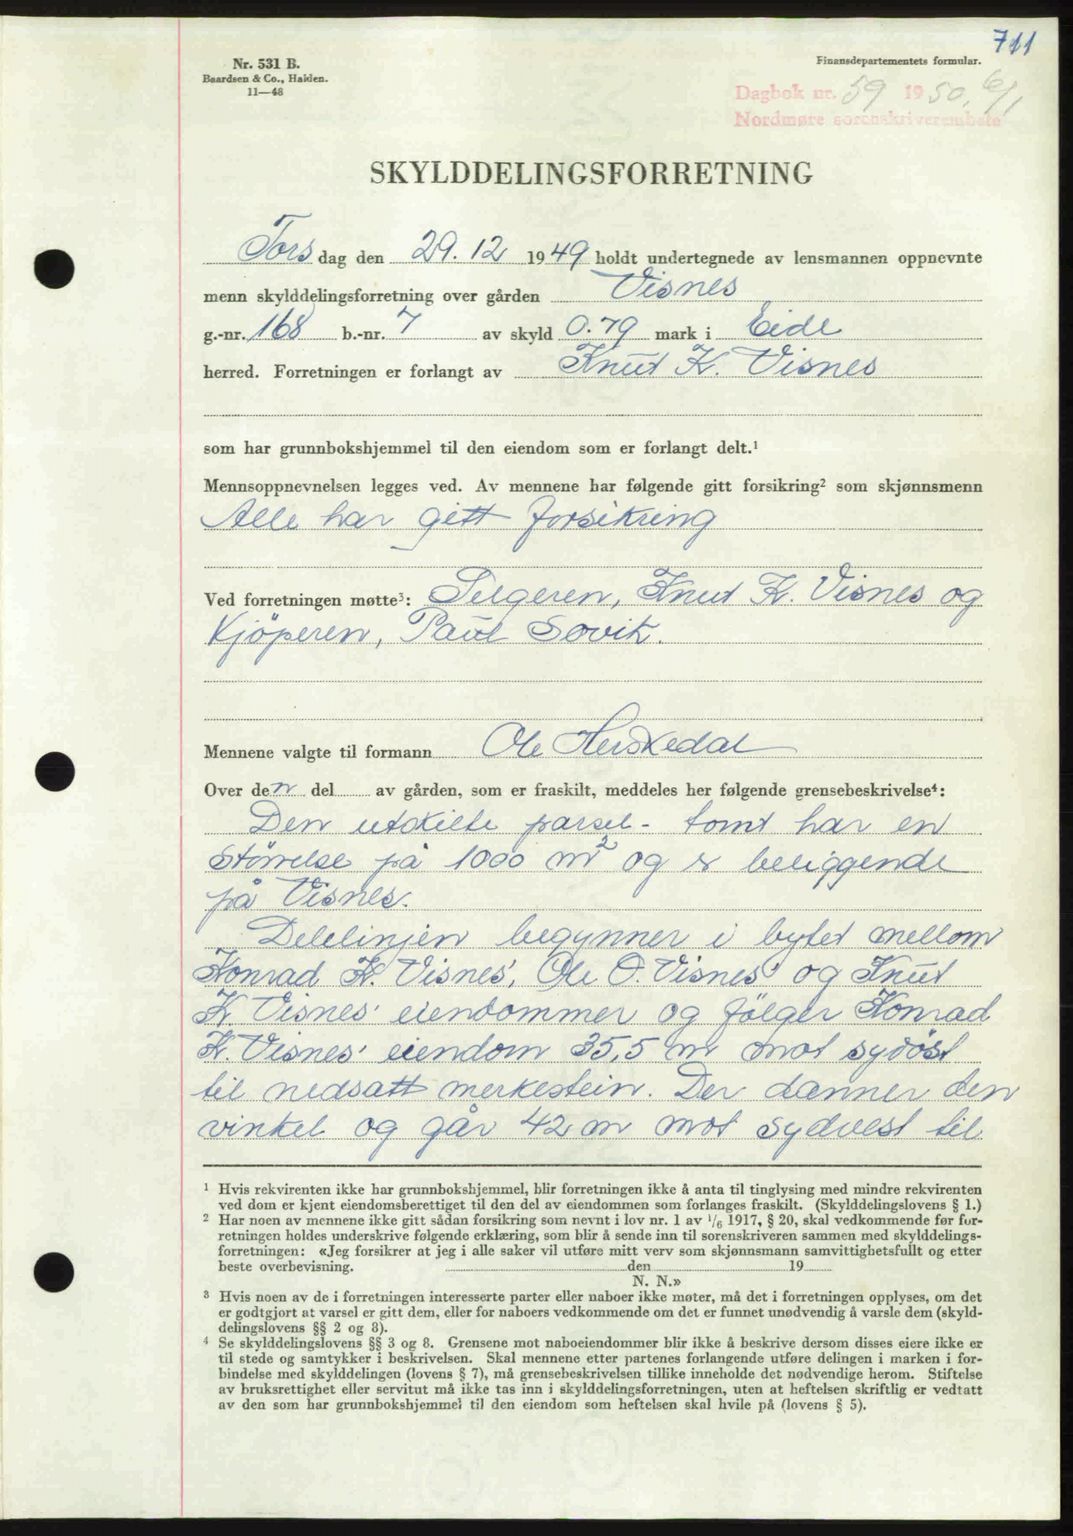 711
Nr. 531 B.
Baardsen & Co., Halden.
11—48
Finansdepartementets formular.
Dagbok nr. 59 1950. 6/1
Nordmøre sorenskriverembete
SKYLDDELINGSFORRETNING
Tors dag den 29. 12 1949 holdt undertegnede av lensmannen oppnevnte
menn skylddelingsforretning over gården Visnes
g.-nr. 168 b.-nr. 7 av skyld 0.79 mark i Eide
herred. Forretningen er forlangt av Knut K. Visnes
som har grunnbokshjemmel til den eiendom som er forlangt delt.¹
Mennsoppnevnelsen legges ved. Av mennene har følgende gitt forsikring² som skjønnsmenn
Alle har gitt forsikring
Ved forretningen møtte³: Selgeren, Knut K. Visnes og
Kjöperen, Paul Sovik.
Mennene valgte til formann Ole Herskedal
Over den del av gården, som er fraskilt, meddeles her følgende grensebeskrivelse⁴:
Den utskilte parsel - tomt har en
Störrelse på 1000 m² og er beliggende
på Visnes.
Delelinjen begynner i bytet mellom
Konrad K. Visnes', Ole O. Visnes' og Knut
K. Visnes' eiendommer og fölger Konrad
K. Visnes' eiendom 35,5 m mot sydöst
til nedsatt merkestein. Der danner den
vinkel og går 42 m mot sydvest til
¹ Hvis rekvirenten ikke har grunnbokshjemmel, blir forretningen ikke å anta til tinglysing med mindre rekvirenten
ved dom er kjent eiendomsberettiget til den del av eiendommen som forlanges fraskilt. (Skylddelingslovens § 1.)
² Har noen av mennene ikke gitt sådan forsikring som nevnt i lov nr. 1 av 1/6 1917, § 20, skal vedkommende før for-
retningen holdes underskrive følgende erklæring, som blir å sende inn til sorenskriveren sammen med skylddelings-
forretningen: «Jeg forsikrer at jeg i alle saker vil utføre mitt verv som skjønnsmann samvittighetsfullt og etter
beste overbevisning. den 19
N. N.»
³ Hvis noen av de i forretningen interesserte parter eller naboer ikke møter, må det i forretningen opplyses, om det
er godtgjort at varsel er gitt dem, eller for naboers vedkommende om det er funnet unødvendig å varsle dem (skyld-
delingslovens §§ 2 og 8).
⁴ Se skylddelingslovens §§ 3 og 8. Grensene mot naboeiendommer blir ikke å beskrive dersom disses eiere ikke er
til stede og samtykker i beskrivelsen. Skal mennene etter partenes forlangende utføre delingen i marken i for-
bindelse med skylddelingen (lovens § 7), må grensebeskrivelsen tillike inneholde det nødvendige herom. Stiftelse
av bruksrettighet eller servitut må ikke tas inn i skylddelingsforretningen, uten at heftelsen skriftlig er vedtatt
av den som har grunnbokshjemmel til den eiendom som heftelsen skal hvile på (lovens § 5).